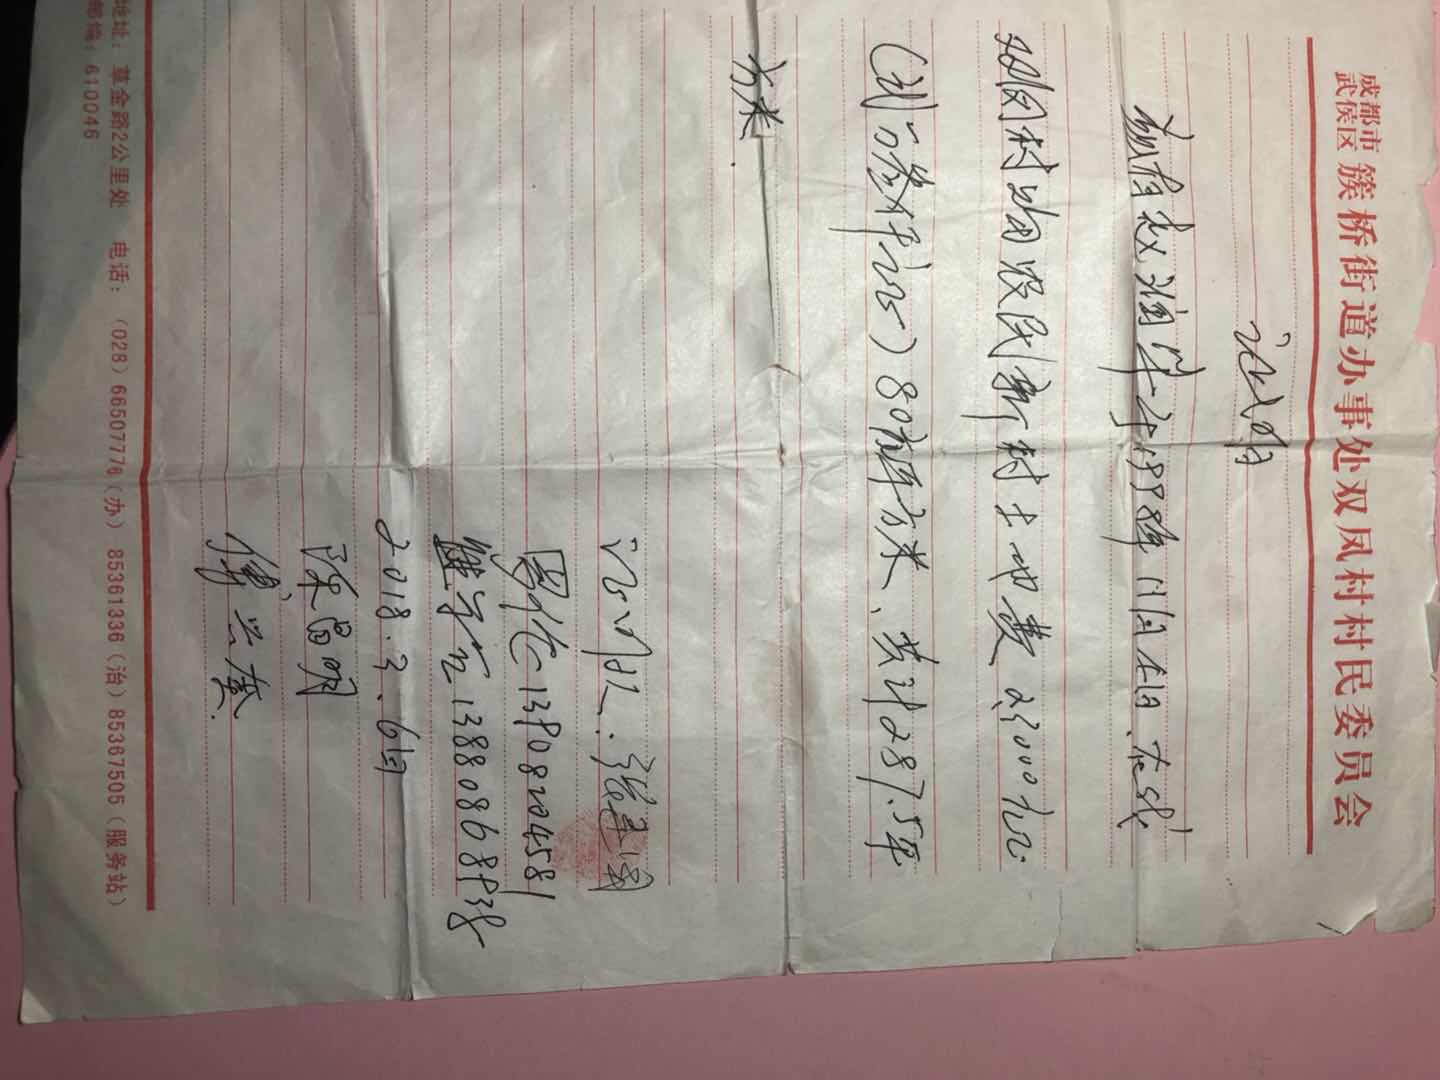 成都市
武侯区 簇桥街道办事处双凤村村民委员会
证明
兹有赵润华于1998年11月4日在我
双凤村购农民新村土地费23000元
80平方米、共计287.5平
方米.
证明人:
13908204581
13880868938
2018.3.6日
陈昌明
傅兴泰
地址:草金路2公里处 电话:(028)66507776(办) 85361336(治)85367505(服务站)
邮编:610046